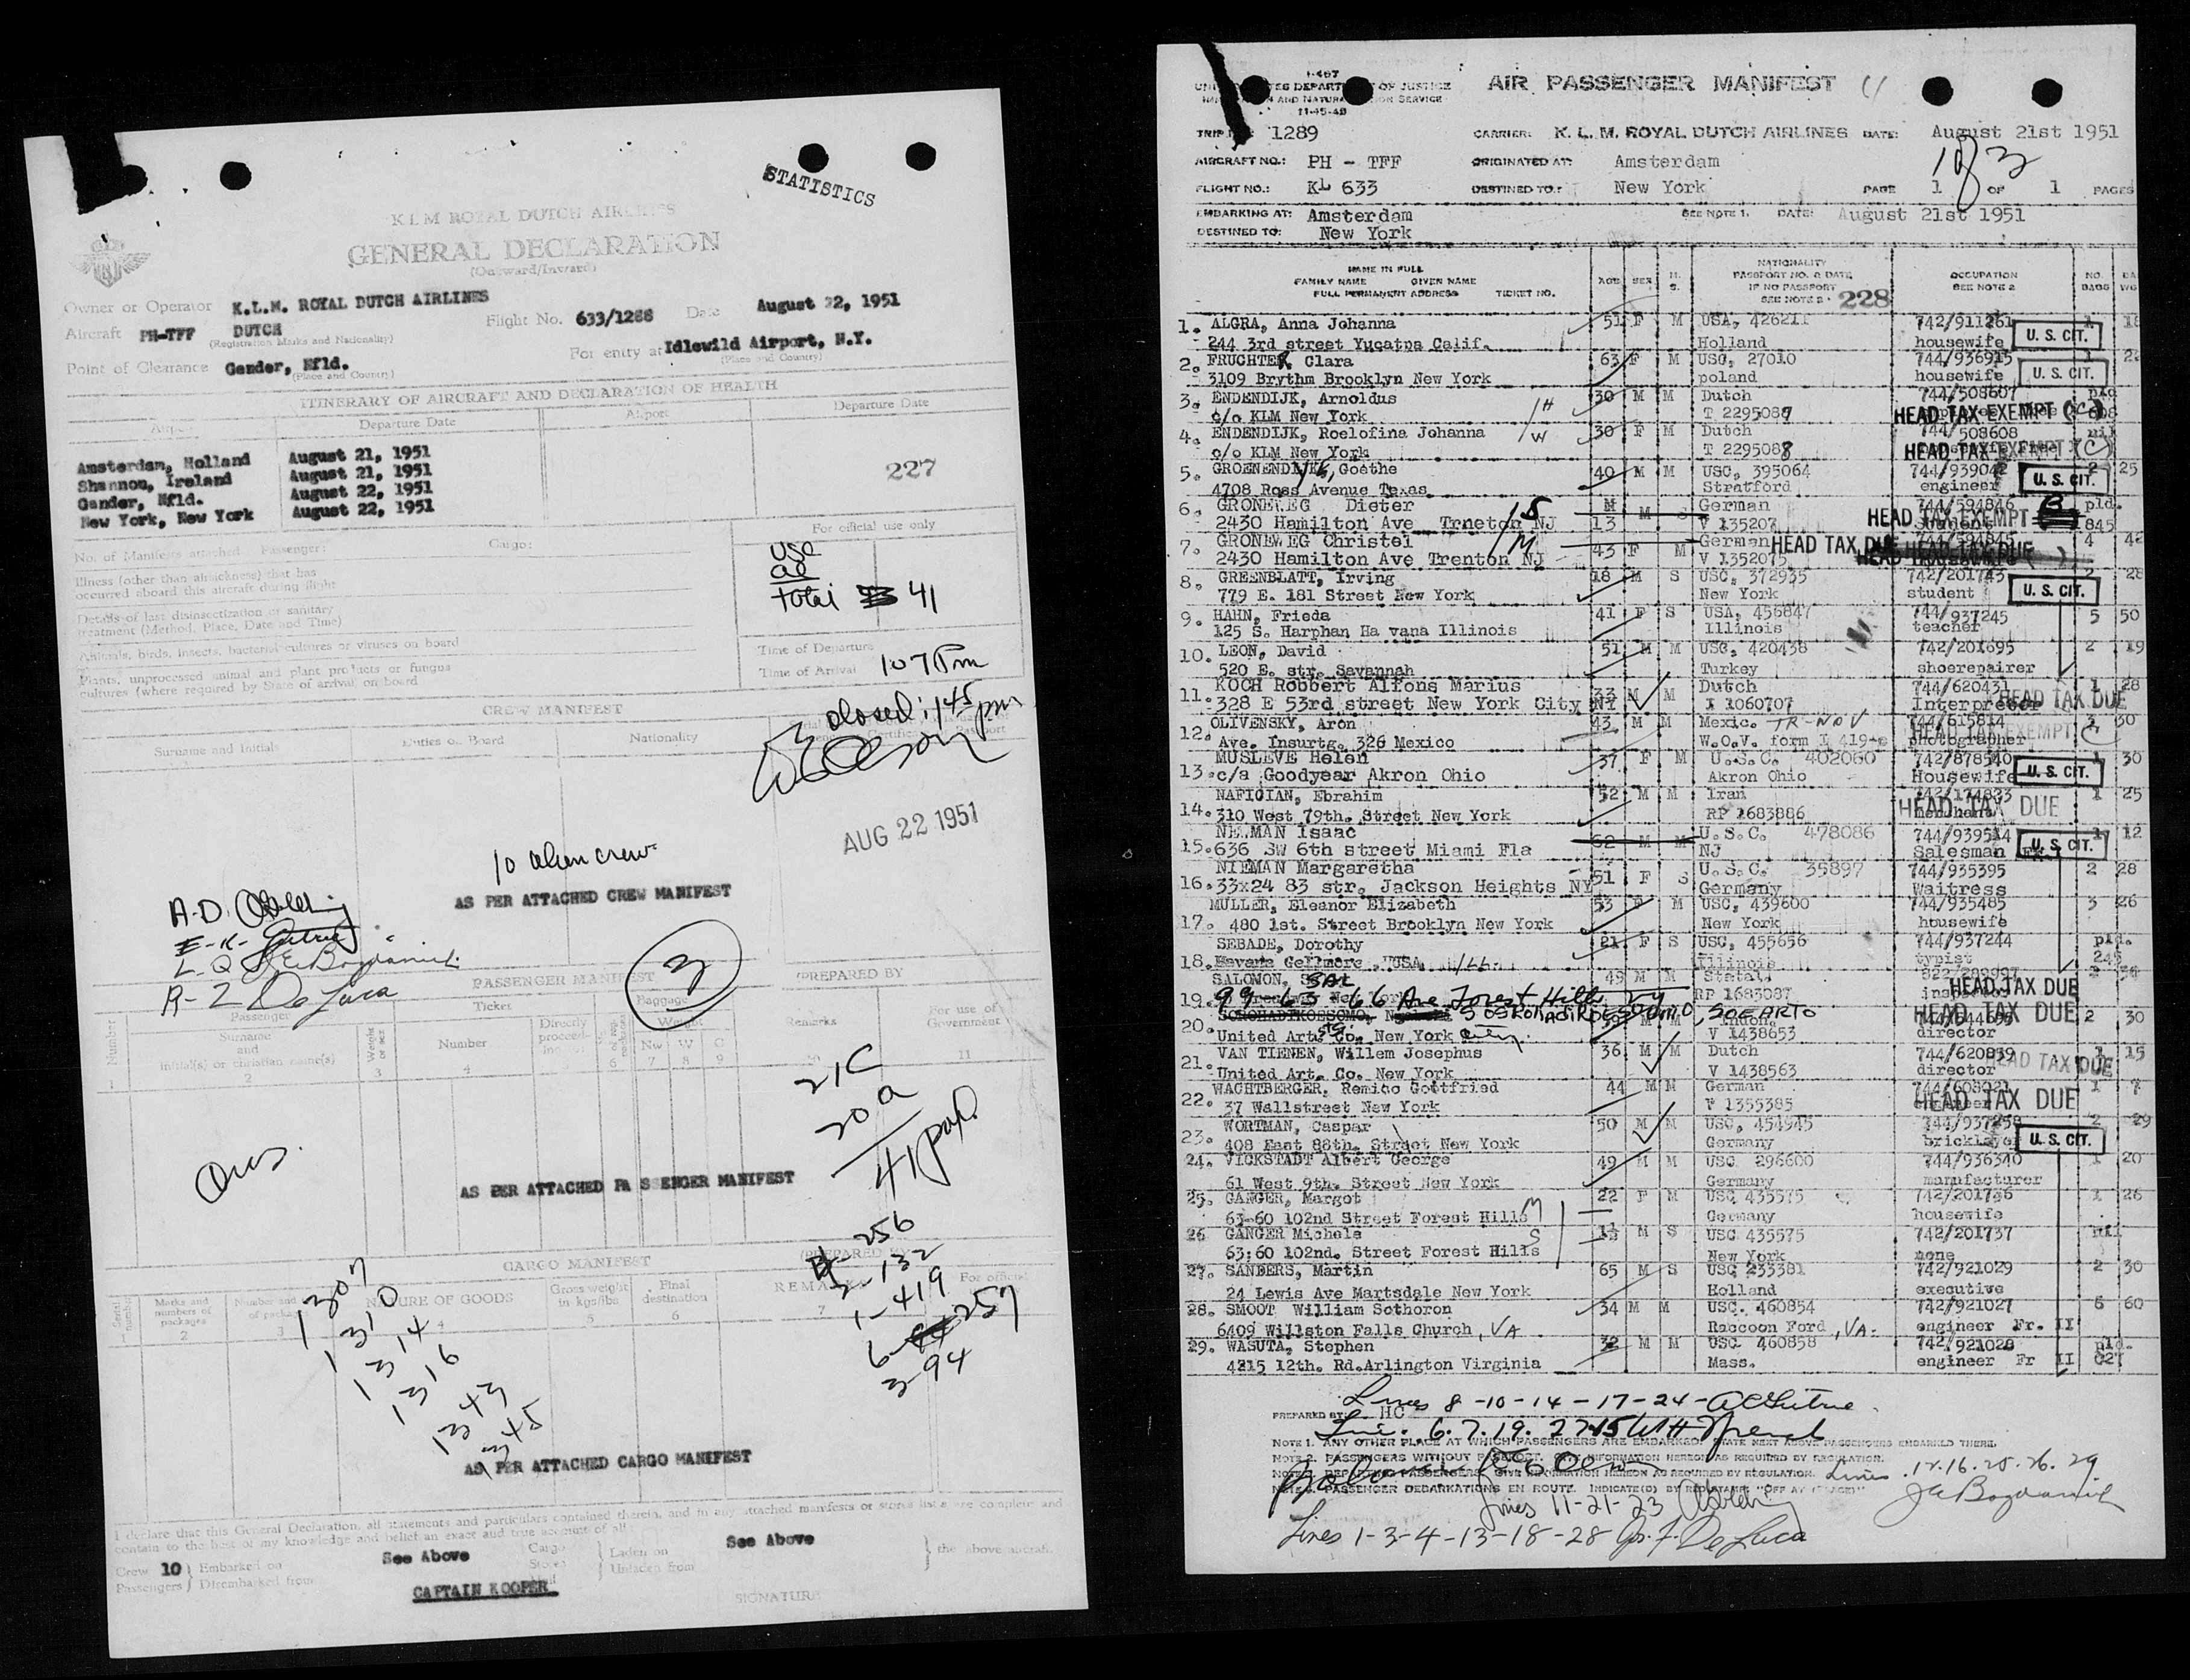 STATISTICS
KLM ROYAL DUTCH AIRLINES
GENERAL DECLARATION
(Outward/Inward)
Owner or Operator K.L.M. ROYAL DUTCH AIRLINES
Flight No. 633/1288 Date August 22, 1951
Aircraft PH-TFF DUTCH
(Registration Marks and Nationality)
For entry at Idlewild Airport, N.Y.
(Place and Country)
Point of Clearance Gander, Nfld.
(Place and Country)
ITINERARY OF AIRCRAFT AND DECLARATION OF HEALTH
Airport Departure Date Airport Departure Date
Amsterdam, Holland August 21, 1951
Shannon, Ireland August 21, 1951
Gander, Nfld. August 22, 1951
New York, New York August 22, 1951
227
For official use only
No. of Manifests attached Passenger: Cargo:
Illness (other than airsickness) that has
occurred aboard this aircraft during flight
Details of last disinsectization or sanitary
treatment (Method, Place, Date and Time)
Animals, birds, insects, bacterial cultures or viruses on board
Plants, unprocessed animal and plant products or fungus
cultures (where required by State of arrival) on board
USC
al
total 41
Time of Departure
Time of Arrival 107 Pm
closed: 1:45 pm
CREW MANIFEST
Surname and Initials Duties on Board Nationality
AUG 22 1951
10 alien crew
AS PER ATTACHED CREW MANIFEST
R-2 De Luca
3
PASSENGER MANIFEST
PREPARED BY
Number Passenger Ticket Baggage Remarks For use of Government
Surname and initial(s) or christian name(s)
21C
20a
41 pax
AS PER ATTACHED PASSENGER MANIFEST
256
2-132
1-419
6-257
3-94
CARGO MANIFEST
(PREPARED BY
Marks and numbers of packages NATURE OF GOODS Gross weight in kgs/lbs Final destination REMARKS For official
1307
1310
1314
1316
1343
1345
AS PER ATTACHED CARGO MANIFEST
I declare that this General Declaration, all statements and particulars contained therein, and in any attached manifests or stores lists are complete and
contain to the best of my knowledge and belief an exact and true account of all:
Crew 10 Embarked on See Above Cargo Laden on See Above the above aircraft.
Passengers Disembarked from Stores Unladen from
CAPTAIN KOOPER
SIGNATURE
I-467
11-15-49
AIR PASSENGER MANIFEST
TRIP 1289 CARRIER: K. L. M. ROYAL DUTCH AIRLINES DATE: August 21st 1951
AIRCRAFT NO.: PH - TFF ORIGINATED AT: Amsterdam
1 of 2
FLIGHT NO.: KL 633 DESTINED TO: New York PAGE 1 OF 1 PAGES
EMBARKING AT: Amsterdam SEE NOTE 1. DATE: August 21st 1951
DESTINED TO: New York
NAME IN FULL
FAMILY NAME GIVEN NAME
FULL PERMANENT ADDRESS TICKET NO.
AGE SEX M. S.
NATIONALITY
PASSPORT NO. & DATE
IF NO PASSPORT
SEE NOTE 2. 228
OCCUPATION
SEE NOTE 2
NO. BAGS
1. ALGRA, Anna Johanna 51 F M USA, 426211 742/911261 1 18
244 3rd street Yucatpa Calif. Holland housewife U. S. CIT.
2. FRUCHTER Clara 63 F M USC, 27010 744/936915 1
3109 Brythm Brooklyn New York poland housewife U. S. CIT.
3. ENDENDIJK, Arnoldus 30 M M Dutch 744/508607 pld
c/o KLM New York H T 2295089 HEAD TAX EXEMPT (C) 608
4. ENDENDIJK, Roelofina Johanna 30 F M Dutch 744/508608 nil
c/o KLM New York W T 2295088 HEAD TAX EXEMPT (C)
5. GROENENDIJK, Goethe 40 M M USC, 395064 744/939042 2 25
4708 Ross Avenue Texas Stratford engineer U. S. CIT.
6. GRONEWEG Dieter S M German 744/594846 pld.
2430 Hamilton Ave Trneton NJ 13 M S V 135207 student HEAD TAX EXEMPT B 845
7. GRONEWEG Christel M 43 F M German HEAD TAX DUE 744/594845 4 42
2430 Hamilton Ave Trenton NJ V 1352075
8. GREENBLATT, Irving 18 M S USC, 372935 742/201743 28
779 E. 181 Street New York New York student U. S. CIT.
9. HAHN, Frieda 41 F S USA, 456847 744/937245 5 50
125 S. Harphan Ha vana Illinois Illinois teacher
10. LEON, David 51 M M USC, 420438 742/201695 2 19
520 E. str. Savannah Turkey shoerepairer
11. KOCH Robbert Alfons Marius 33 M M Dutch 744/620431 1 28
328 E 53rd street New York City NY I 1060707 Interpreter HEAD TAX DUE
12. OLIVENSKY, Aron 43 M M Mexic. TR-NOV 744/615814 3 30
Ave. Insurtg. 326 Mexico W.O.V. form I 419 photographer HEAD TAX EXEMPT
13. MUSLEVE Helen 37 F M U.S.C. 402060 742/878540 1 30
c/a Goodyear Akron Ohio Akron Ohio Housewife U. S. CIT.
14. NAFICIAN, Ebrahim 52 M M Iran 742/174833 1 25
310 West 79th. Street New York RP 1683886 merchant HEAD TAX DUE
15. NEWMAN Isaac 62 M M U.S.C. 478086 744/939514 1 12
636 SW 6th street Miami Fla NJ Salesman U. S. CIT.
16. NIEMAN Margaretha 51 F S U.S.C. 35897 744/935395 2 28
33x24 83 str. Jackson Heights NY Germany Waitress
17. MULLER, Eleanor Elizabeth 53 F M USC, 439600 744/935485 3 26
480 1st. Street Brooklyn New York New York housewife
18. SEBADE, Dorothy 21 F S USC, 455656 744/937244 pld.
Havana Gellmore USA Ill. Illinois typist 245
19. SALOMON, SAL 49 M M Statal.
99-63-66 Ave Forest Hills NY RP 1683087 HEAD TAX DUE
20. SOSROHADIKOESOEMO, SOEARTO Indon. HEAD TAX DUE 2 30
United Arts Co. New York City V 1438653 director
21. VAN TIENEN, Willem Josephus 36 M M Dutch 744/620839 1 15
United Art. Co. New York V 1438563 director HEAD TAX DUE
22. WACHTBERGER, Remigo Gottfried 44 M M German 1 7
37 Wallstreet New York T 1355385 engineer HEAD TAX DUE
23. WORTMAN, Caspar 50 M M USC, 454945 744/937258 2 29
408 East 88th. Street New York Germany bricklayer U. S. CIT.
24. VICKSTADT Albert George 49 M M USC 296600 744/936340 1 20
61 West 9th. Street New York Germany manufacturer
25. GANGER, Margot 22 F M USC 435575 742/201736 1 26
63-60 102nd Street Forest Hills M Germany housewife
26 GANGER Michele M S USC 435575 742/201737 nil
63:60 102nd. Street Forest Hills S New York none
27. SANDERS, Martin 65 M S USC 233381 742/921029 2 30
24 Lewis Ave Martsdale New York Holland executive
28. SMOOT William Sothoron 34 M M USC. 460854 742/921027 6 60
6409 Willston Falls Church, VA Raccoon Ford, VA. engineer Fr. II
29. WASUTA, Stephen 32 M M USC 460858 742/921028 pld.
4215 12th. Rd.Arlington Virginia Mass. engineer Fr II 027
Lines 8-10-14-17-24-
PREPARED BY HC
NOTE 1. ANY OTHER PLACE AT WHICH PASSENGERS ARE EMBARKED. STATE NEXT ABOVE PASSENGERS EMBARKED THERE.
Lines 12.16.25.26.29
Lines 11-21-23
Lines 1-3-4-13-18-28 Jos. F. De Luca